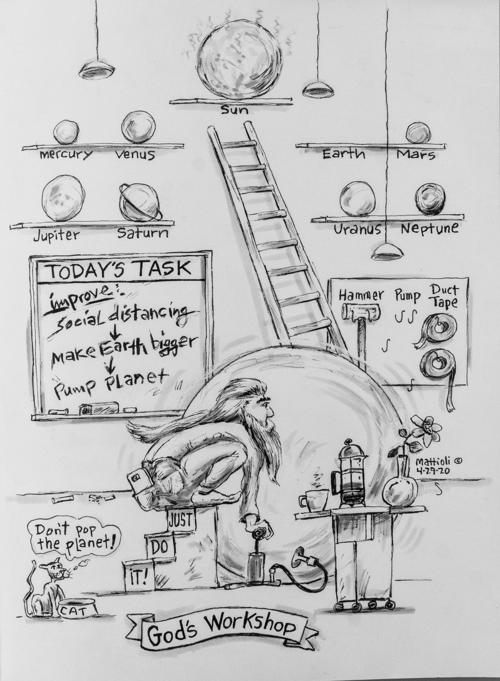 Sun
Mercury Venus
Earth Mars
Jupiter Saturn
Uranus Neptune
TODAY'S TASK
improve:
social distancing
make Earth bigger
Pump Planet
Hammer Pump Duct
Tape
Mattioli ©
4-29-20
JUST
DO
IT!
Don't pop
the planet!
CAT
God's Workshop